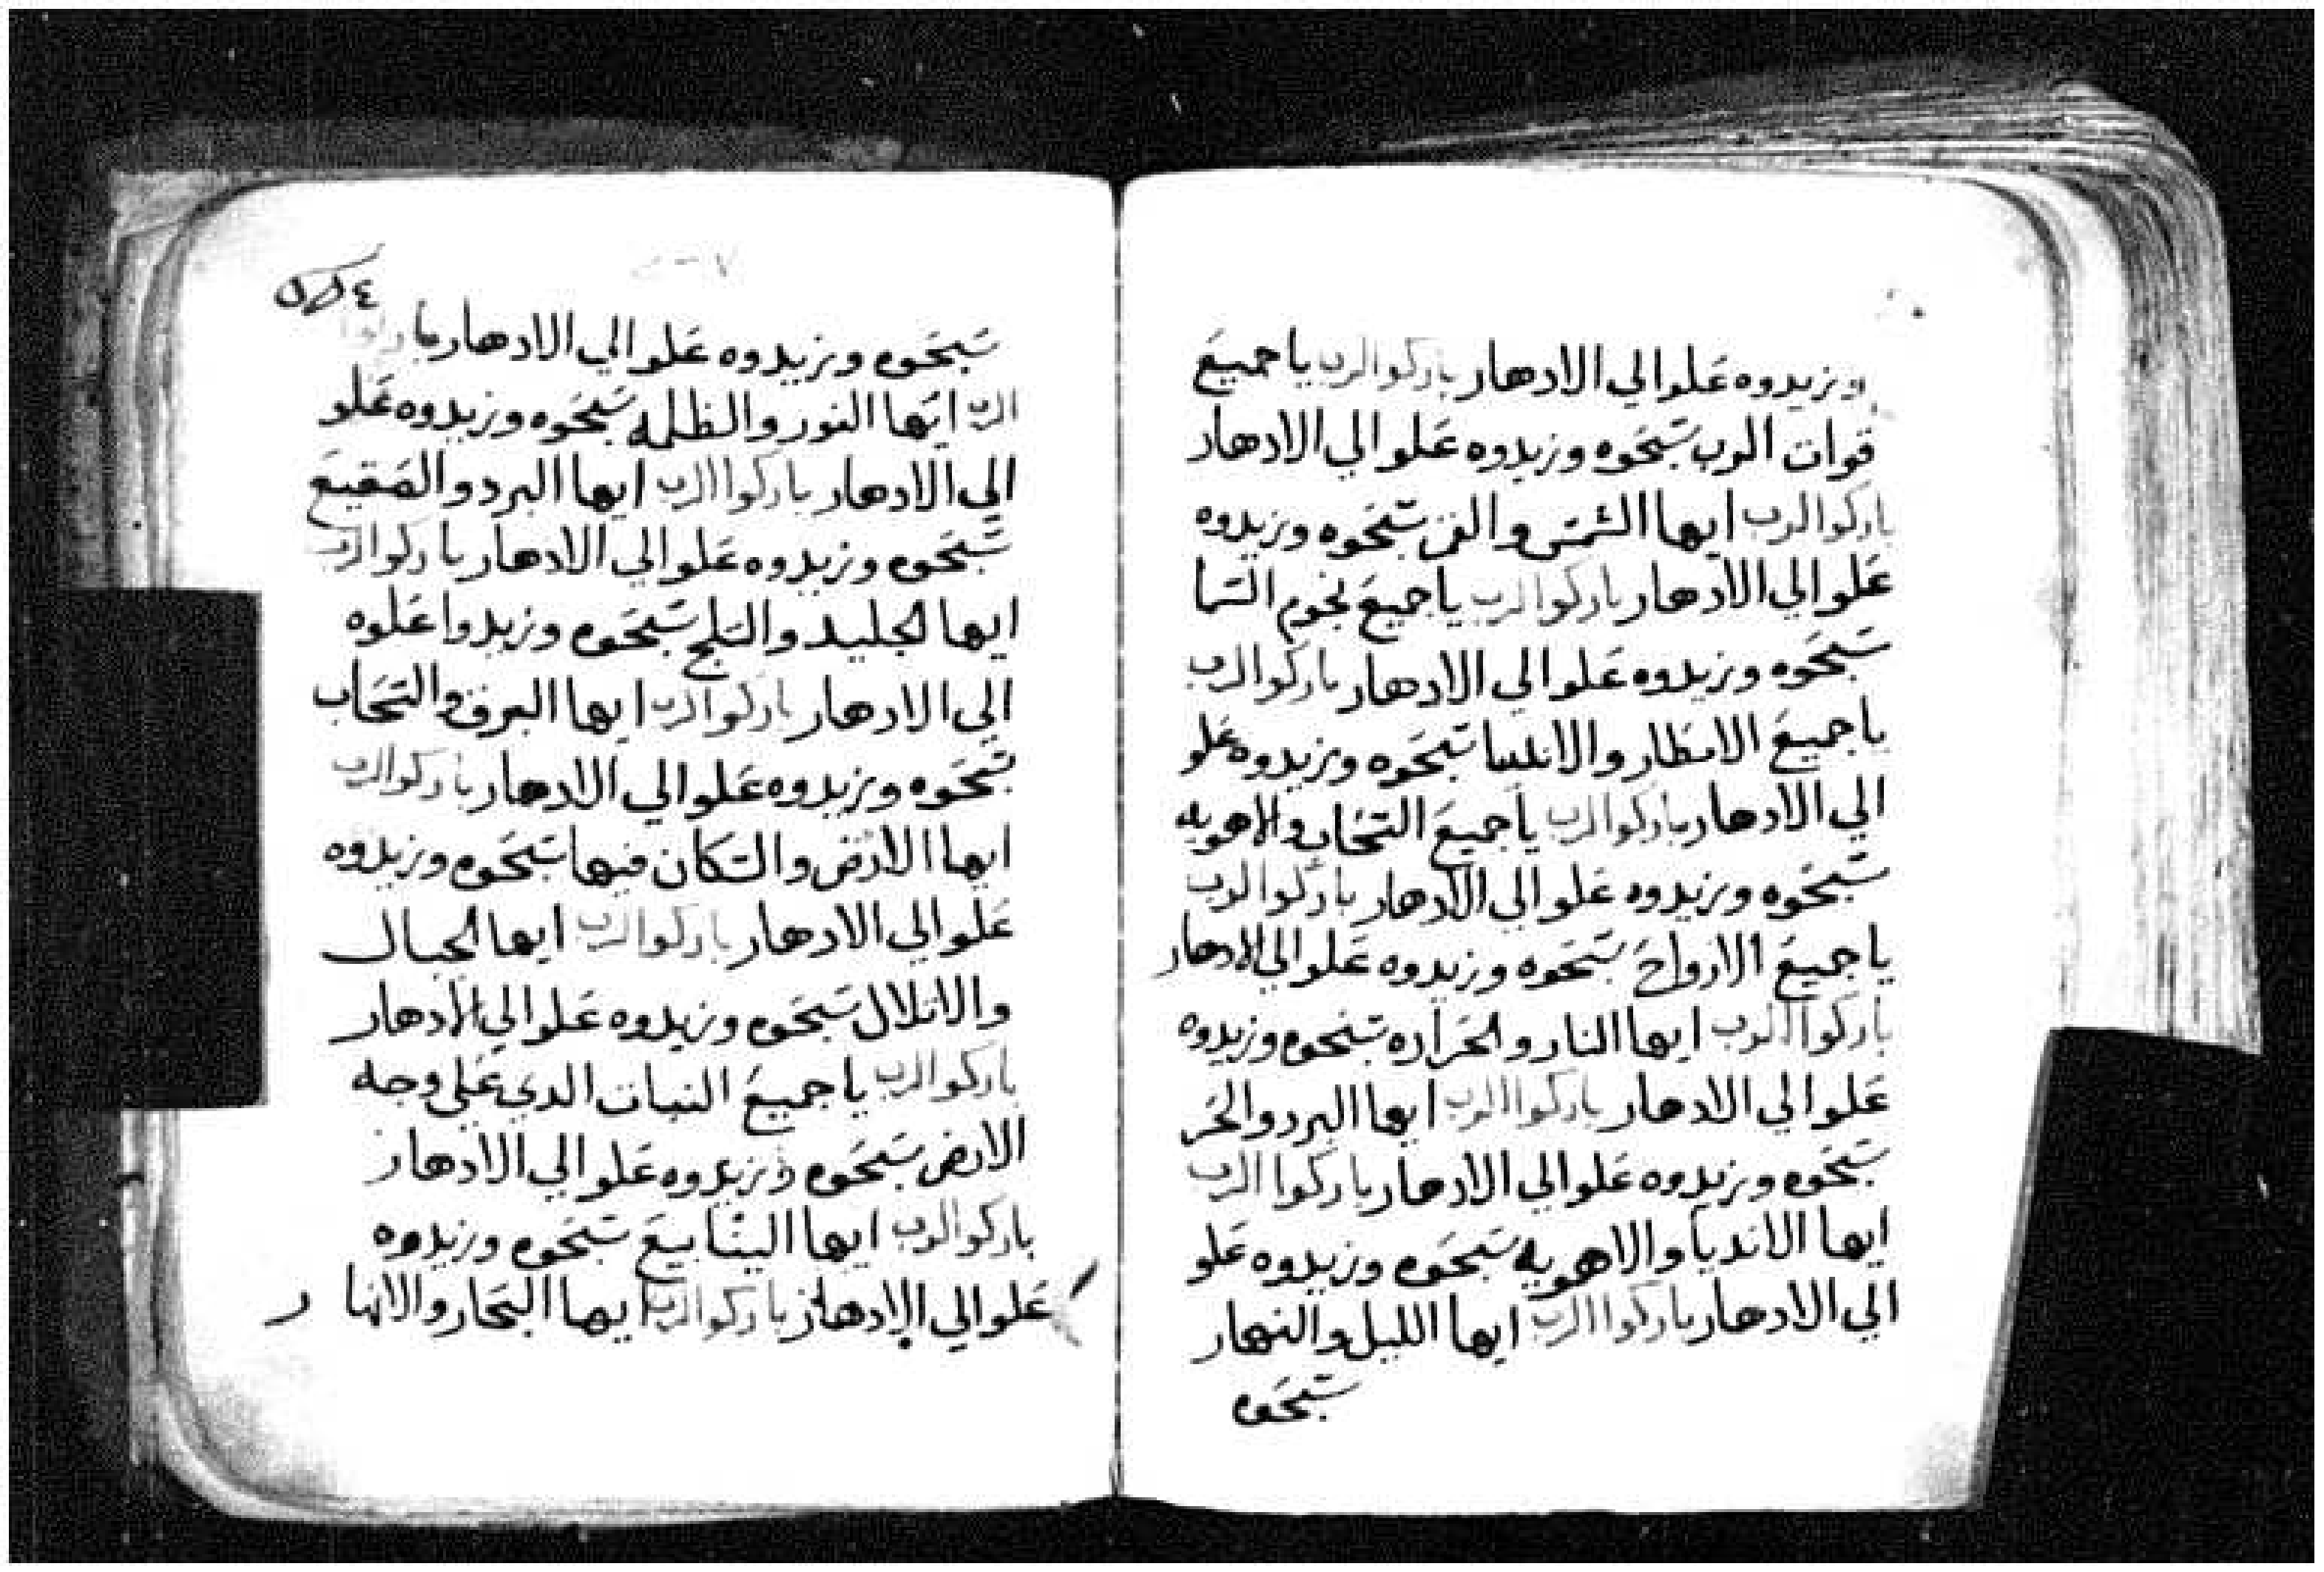 وزيدوه علوا الي الادهار باركوا الرب يا جميع
قوات الرب سبحوه وزيدوه علوا الي الادهار
باركوا الرب ايها الشمس والقمر سبحوه وزيدوه
علوا الي الادهار باركوا الرب يا جميع نجوم السما
سبحوه وزيدوه علوا الي الادهار باركوا الرب
يا جميع الامطار والاندا سبحوه وزيدوه علو
الي الادهار باركوا الرب يا جميع السحاب والاهويه
سبحوه وزيدوه علوا الي الادهار باركوا الرب
يا جميع الارواح سبحوه وزيدوه علوا الي الادهار
باركوا الرب ايها النار والحراره سبحوه وزيدوه
علوا الي الادهار باركوا الرب ايها البرد والحر
سبحوه وزيدوه علوا الي الادهار باركوا الرب
ايها الانديا والاهويه سبحوه وزيدوه علو
الي الادهار باركوا الرب ايها الليل والنهار
سبحوه
سبحوه وزيدوه علوا الي الادهار باركوا
الرب ايها النور والظلمه سبحوه وزيدوه علو
الي الادهار باركوا الرب ايها البرد والصقيع
سبحوه وزيدوه علوا الي الادهار باركوا الرب
ايها الجليد والتلج سبحوه وزيدوا علوه
الي الادهار باركوا الرب ايها البرق والسحاب
سبحوه وزيدوه علوا الي الادهار باركوا الرب
ايها الارض والسكان فيها سبحوه وزيدوه
علوا الي الادهار باركوا الرب ايها الجبال
والاتلال سبحوه وزيدوه علوا الي الادهار
باركوا الرب يا جميع النبات الدي علي وجه
الارض سبحوه وزيدوه علوا الي الادهار
باركوا الرب ايها الينابيع سبحوه وزيدوه
علوا الي الادهار باركوا الرب ايها البحار والانهار